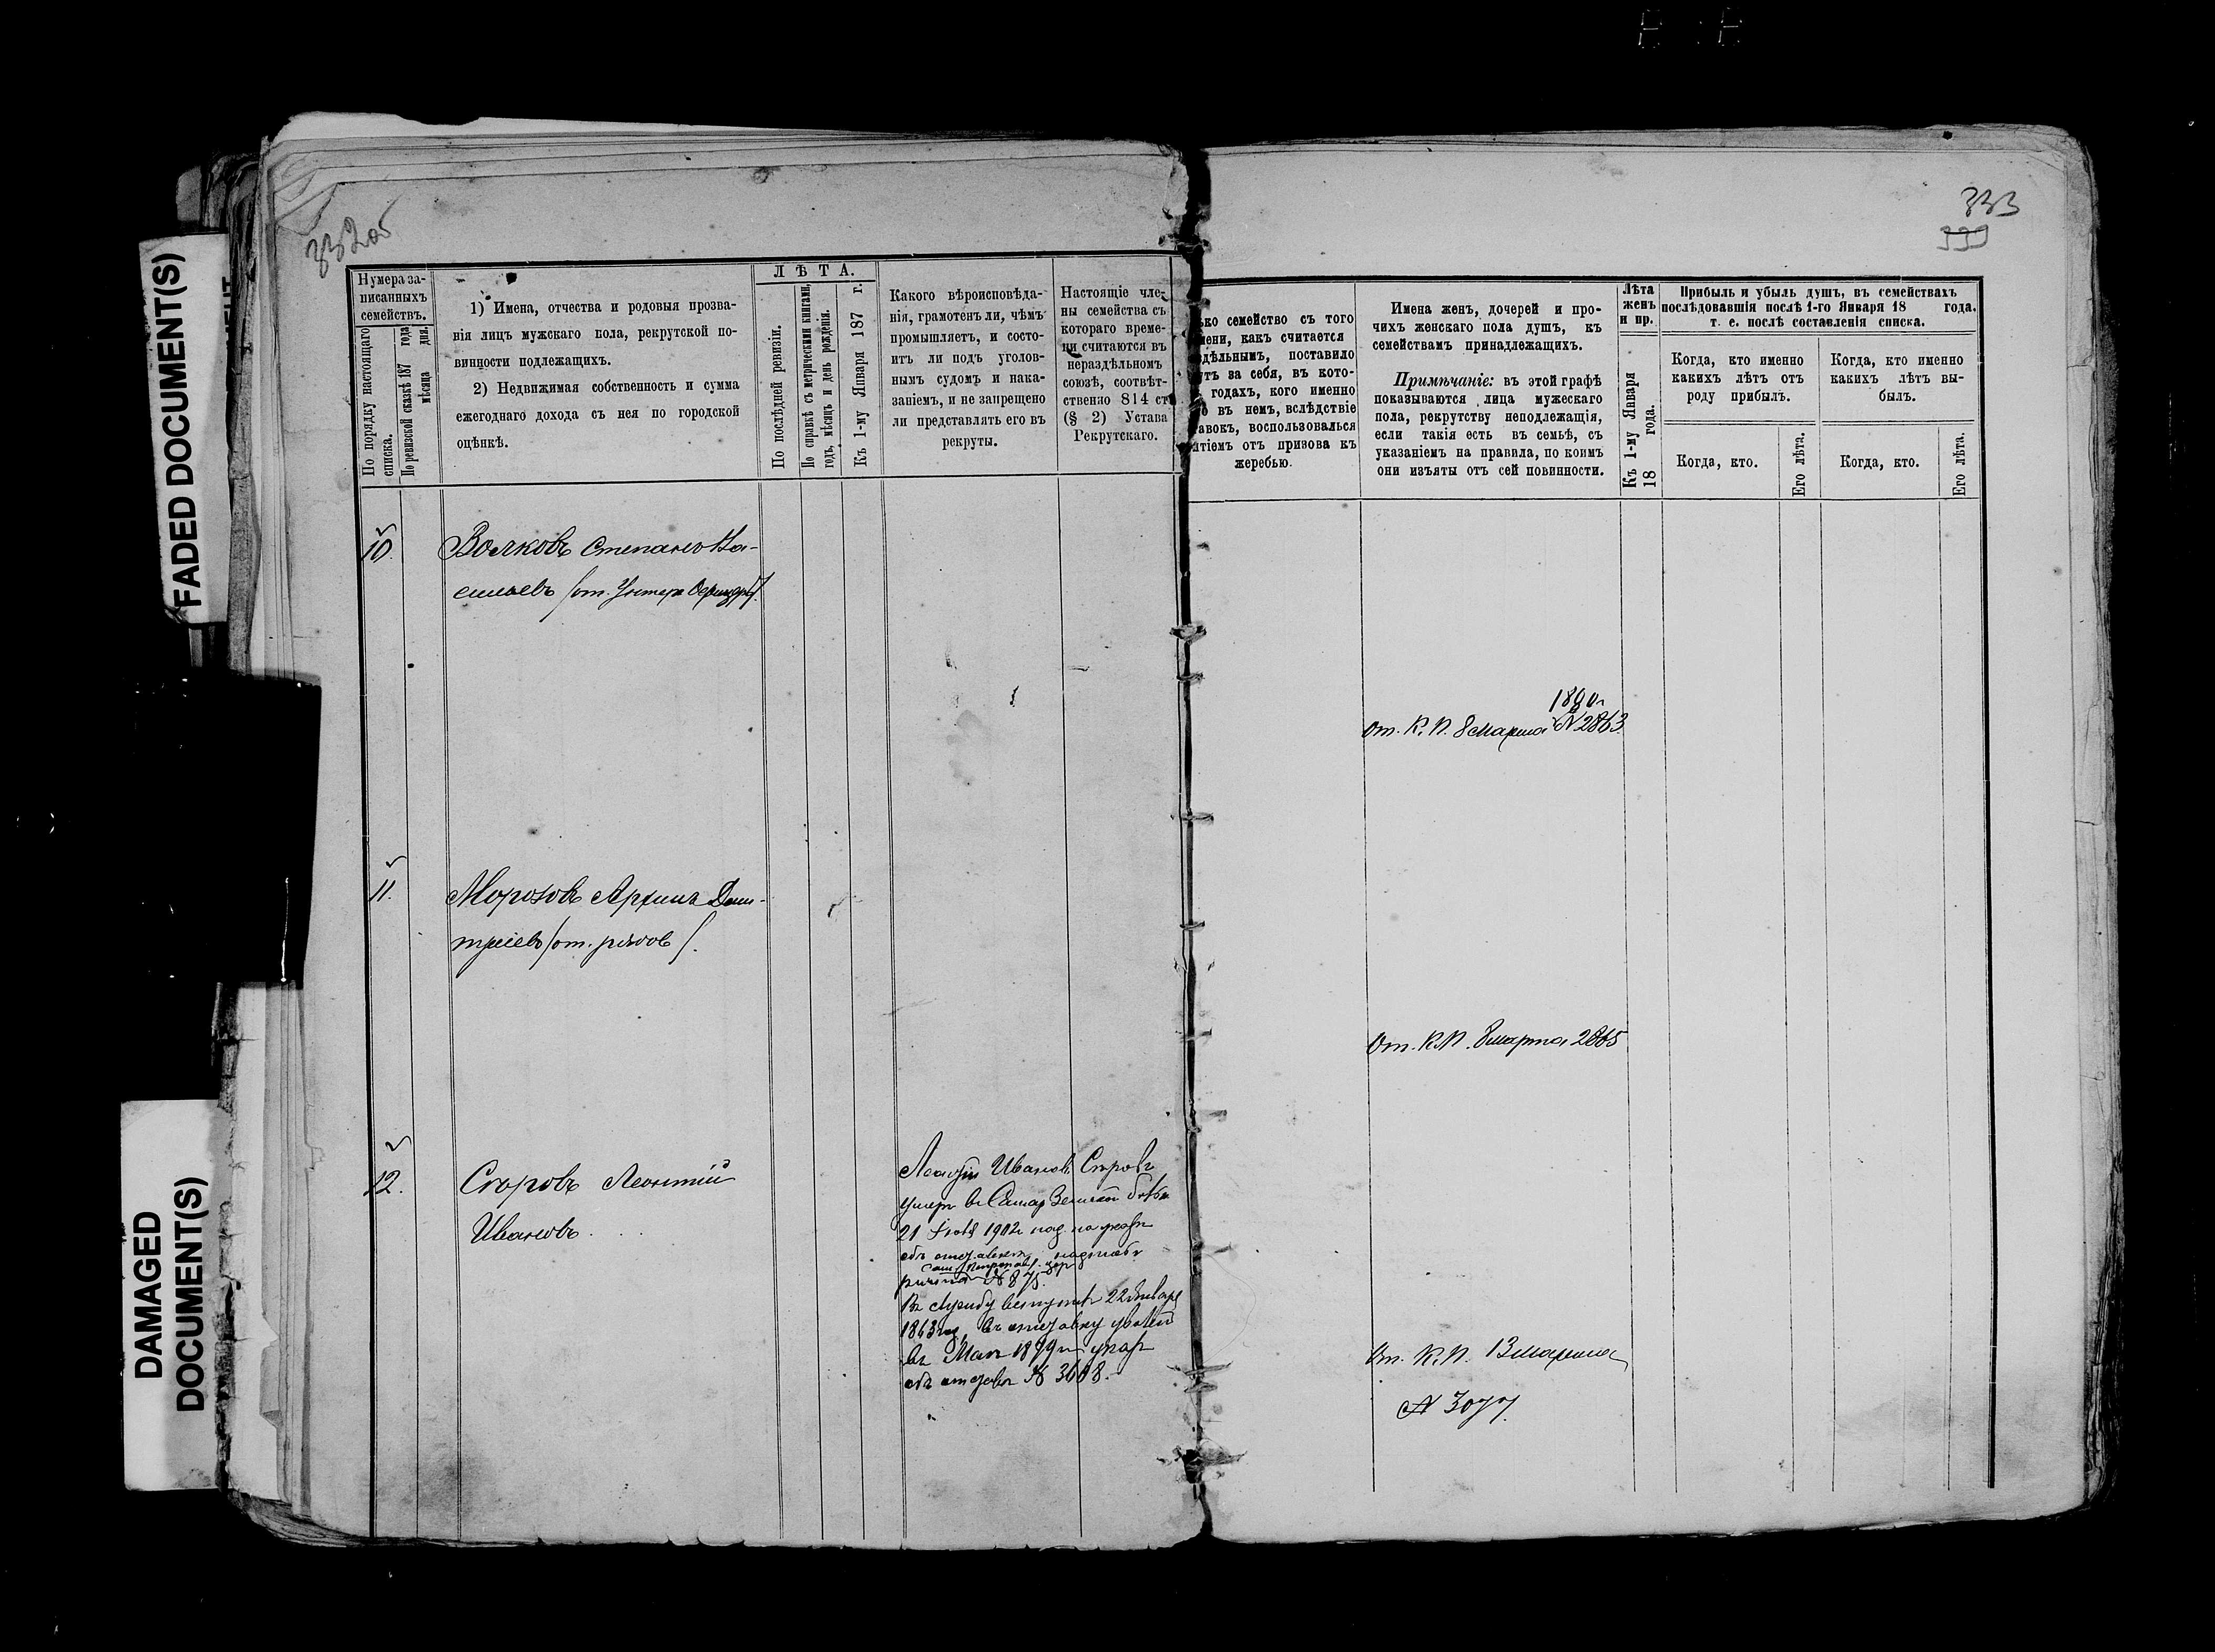 FADED DOCUMENT(S)
DAMAGED
DOCUMENT(S)
332об
Нумера за-
писанныхъ
семействъ.
По порядку настоящаго
списка.
По ревизской сказкѣ 187 года
мѣсяца дня.
1) Имена, отчества и родовыя прозва-
нія лицъ мужскаго пола, рекрутской по-
винности подлежащихъ.
2) Недвижимая собственность и сумма
ежегоднаго дохода съ нея по городской
оцѣнкѣ.
ЛѢТА.
По послѣдней ревизіи.
По справкѣ съ метрическими книгами,
годъ, мѣсяцъ и день рожденія.
Къ 1-му Января 187 г.
Какого вѣроисповѣда-
нія, грамотенъ ли, чѣмъ
промышляетъ, и состо-
итъ ли подъ уголов-
нымъ судомъ и нака-
заніемъ, и не запрещено
ли представлять его въ
рекруты.
Настоящіе чле-
ны семейства съ
котораго време-
ни считаются въ
нераздѣльномъ
союзѣ, соотвѣт-
ственно 814 ст
(§ 2) Устава
Рекрутскаго.
10.
Волковъ Степанъ Ва-
сильевъ (от. Унтеръ Офицеръ).
11.
Морозовъ Архипъ Дми-
тріевъ (от. рядов).
12.
Егоровъ Леонтій
Ивановъ.
Леонтій Ивановъ Егоровъ
умеръ въ Самар Земской больн
21 1902г
№ 875.
Въ службу вступилъ 22 Января
1863 год, въ отставку уволен
въ 1879 г указ
объ отставкѣ № 3608.
333
333
ько семейство съ того
мени, какъ считается
здѣльнымъ, поставило
утъ за себя, въ кото-
годахъ, кого именно
о въ немъ, вслѣдствіе
авокъ, воспользовался
ятіемъ отъ призова къ
жеребью.
Имена женъ, дочерей и про-
чихъ женскаго пола душъ, къ
семействамъ принадлежащихъ.
Примѣчаніе: въ этой графѣ
показываются лица мужескаго
пола, рекрутству неподлежащія,
если такія есть въ семьѣ, съ
указаніемъ на правила, по коимъ
они изъяты отъ сей повинности.
Лѣта
женъ
и пр.
Къ 1-му Января
18 года.
Прибыль и убыль душъ, въ семействахъ
послѣдовавшія послѣ 1-го Января 18 года.
т. е. послѣ составленія списка.
Когда, кто именно
какихъ лѣтъ отъ
роду прибылъ.
Когда, кто именно
какихъ лѣтъ вы-
былъ.
Когда, кто.
Его лѣта.
Когда, кто.
Его лѣта.
От. К. П. 8 марта № 2863
От. К. П. 8 марта 2865
От. К. П. 13 марта
№ 3077.